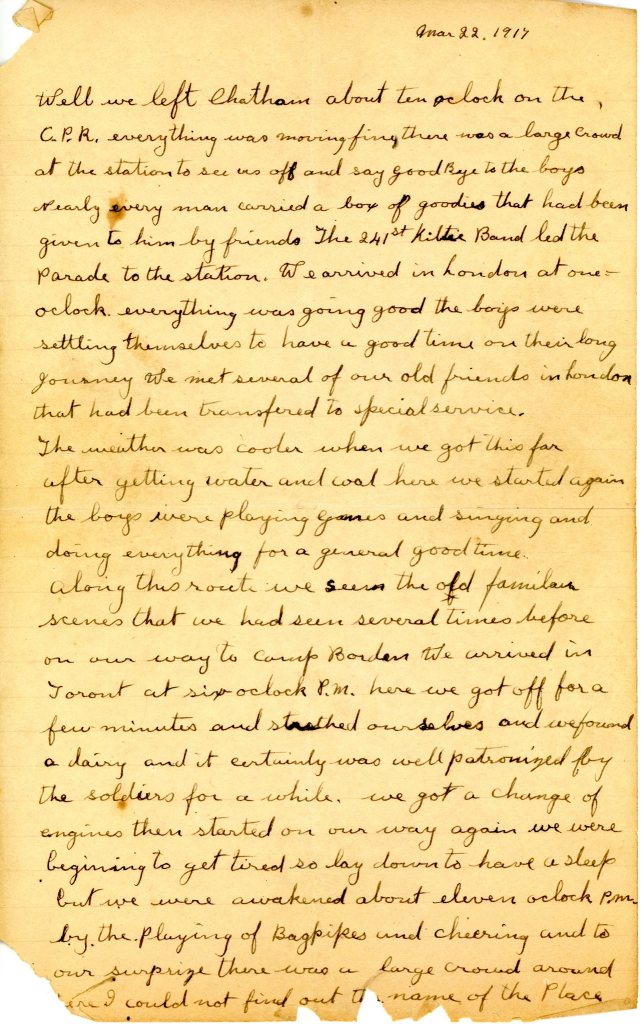 Mar 22. 1917
Well we left Chatham about ten oclock on the,
C.P.R. everything was moving fine, there was a large crowd
at the station to see us off and say good Bye to the boys
Nearly every man carried a box of goodies that had been
given to him by friends The 241st Kiltie Band led the
Parade to the station. We arrived in London at one-
oclock. everything was going good the boys were
settling themselves to have a good time on their long
Journey We met several of our old friends in London
that had been transfered to special service.
The weather was cooler when we got this far
after getting water and coal here we started again
the boys were playing games and singing and
doing everything for a general good time.
Along this route we seen the old familiar
scenes that we had seen several times before
on our way to Camp Borden We arrived in
Toront at six oclock P.M. here we got off for a
few minutes and strethed ourselves and we found
a dairy and it certainly was well patronized by
the soldiers for a while. we got a change of
engines then started on our way again we were
begining to get tired so lay down to have a sleep
but we were awakened about eleven oclock P.M.
by. the Playing of Bagpikes and cheering and to
our surprize there was a large crowd around
I could not find out name of the Place